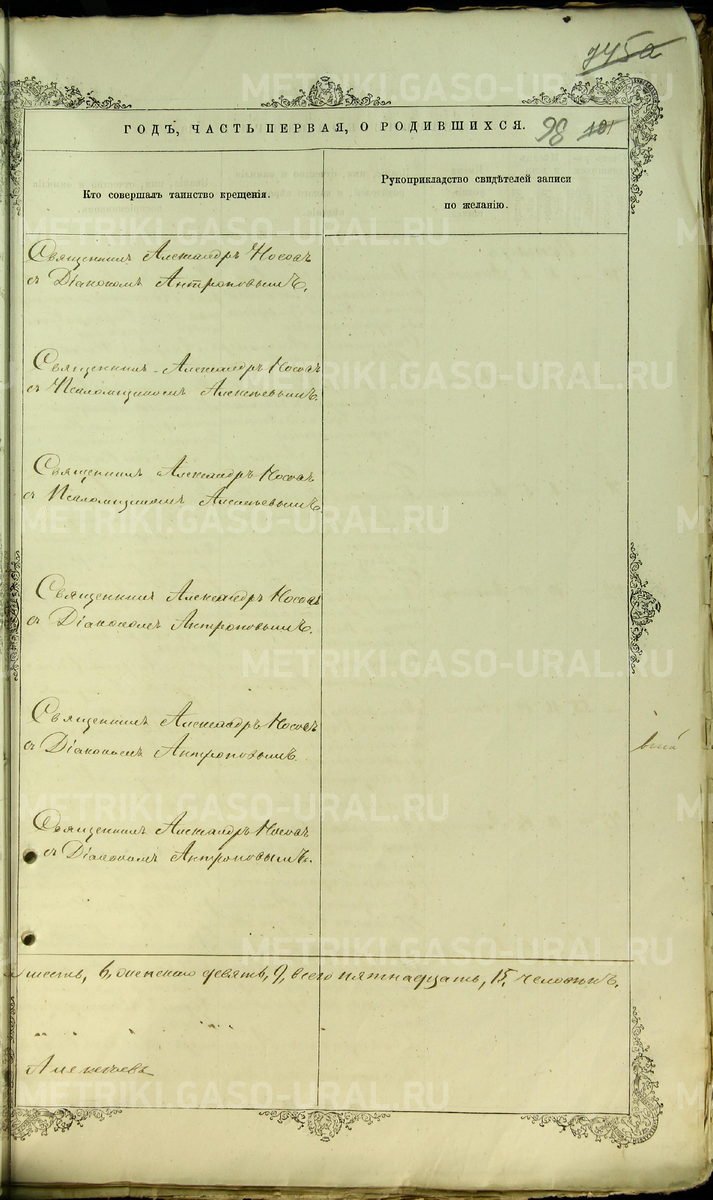 745а
ГОДЪ, ЧАСТЬ ПЕРВАЯ, О РОДИВШИХСЯ.
98 101
Кто совершалъ таинство крещенія.
Рукоприкладство свидѣтелей записи
по желанію.
Священникъ Александръ Носовъ
съ Діакономъ Антроповымъ.
Священникъ Александръ Носовъ
съ Псаломщикомъ Алексѣевымъ.
Священникъ Александръ Носовъ
съ Псаломщикомъ Алексѣевымъ
Священникъ Александръ Носовъ
съ Діакономъ Антроповымъ.
Священникъ Александръ Носовъ
съ Діакономъ Антроповымъ.
Священникъ Александръ Носовъ
съ Діакономъ Антроповымъ.
шесть, 6, женскаго девять, 9, всего пятнадцать, 15, человѣкъ.
Алексѣевъ
METRIKI.GASO-URAL.RU